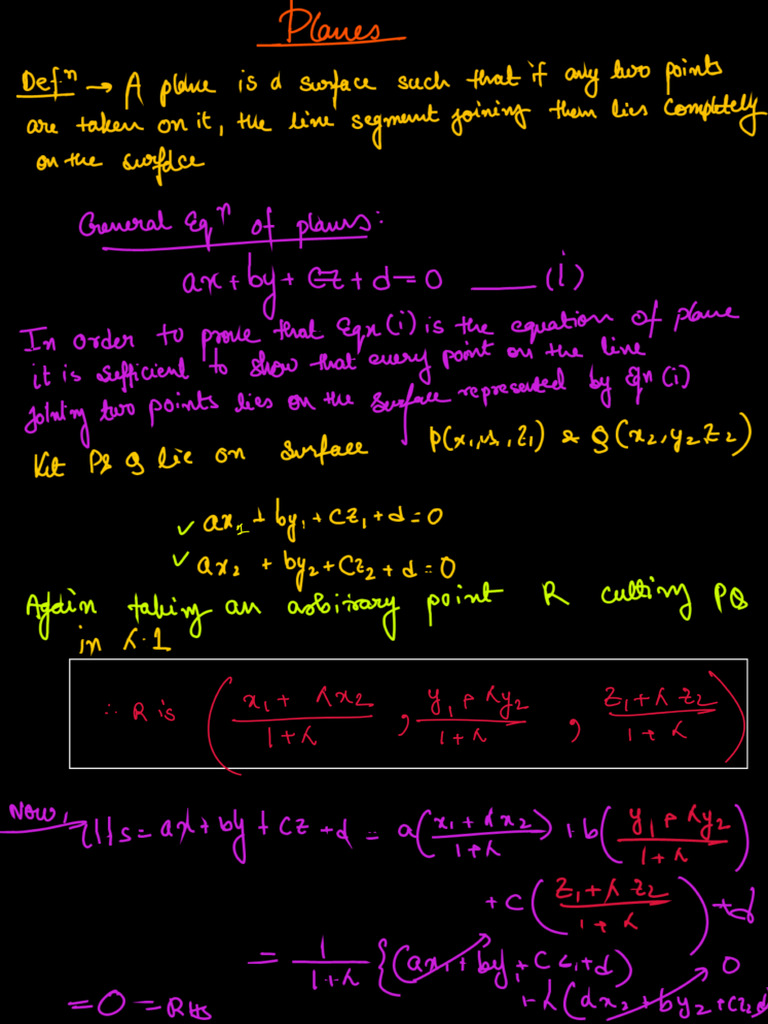 Planes
Defⁿ → A plane is a surface such that if any two points
are taken on it, the line segment joining them lies completely
on the surface
General Eqⁿ of planes:
ax + by + cz + d = 0 ——— (i)
In order to prove that Eqn (i) is the equation of plane
it is sufficient to show that every point on the line
joining two points lies on the surface represented by Eqn (i)
Let P & Q lie on surface P(x₁, y₁, z₁) & Q(x₂, y₂ z₂)
✓ ax₁ + by₁ + cz₁ + d = 0
✓ ax₂ + by₂ + cz₂ + d = 0
Again taking an arbitrary point R cutting PQ
in λ:1
∴ R is ( (x₁ + λx₂)/(1+λ) , (y₁ + λy₂)/(1+λ) , (z₁ + λz₂)/(1+λ) )
Now, LHS = ax + by + cz + d = a((x₁ + λx₂)/(1+λ)) + b((y₁ + λy₂)/(1+λ))
+ c((z₁ + λz₂)/(1+λ)) + d
= 1/(1+λ) {(ax₁ + by₁ + cz₁ + d) 0
+ λ(ax₂ + by₂ + cz₂ d
= 0 = RHS